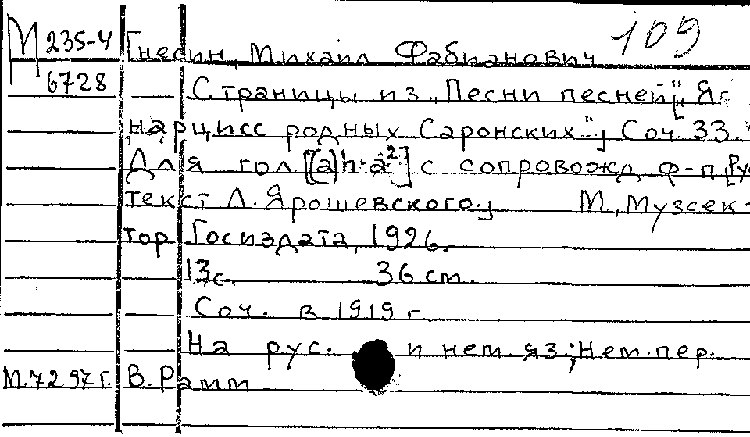 М 235-4 Гнесин, Михаил Фабианович 109
6728 Страницы из „Песни песней". [Я
нарцисс родных Саронских"] Соч. 33.
Для гол. [(a)h-a²] с сопровожд. ф-п. [Рус
текст Л. Ярошевского] М., Музсек-
тор Госиздата, 1926.
13 с. 36 см.
Соч. в 1919 г.
На рус. и нем. яз; Нем. пер.
М. 72 97 г. В. Рамм